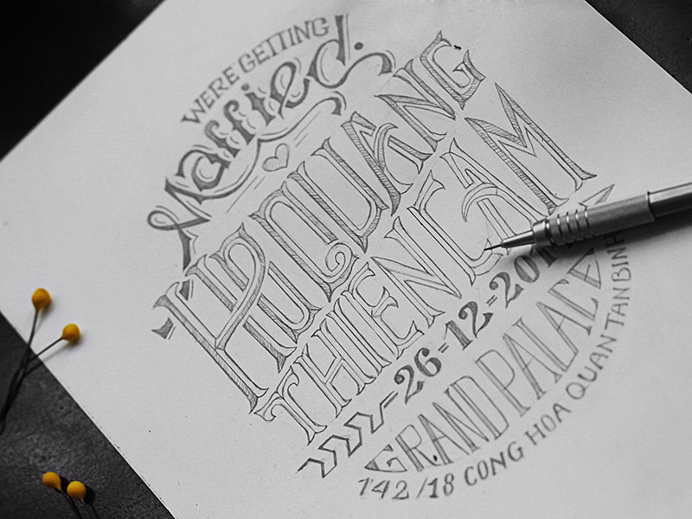 WE'RE GETTING
Married.
HOQUANG
THIENCAM
26-12-20
GRAND PALACE
142/18 CONG HOA QUAN TAN BINH